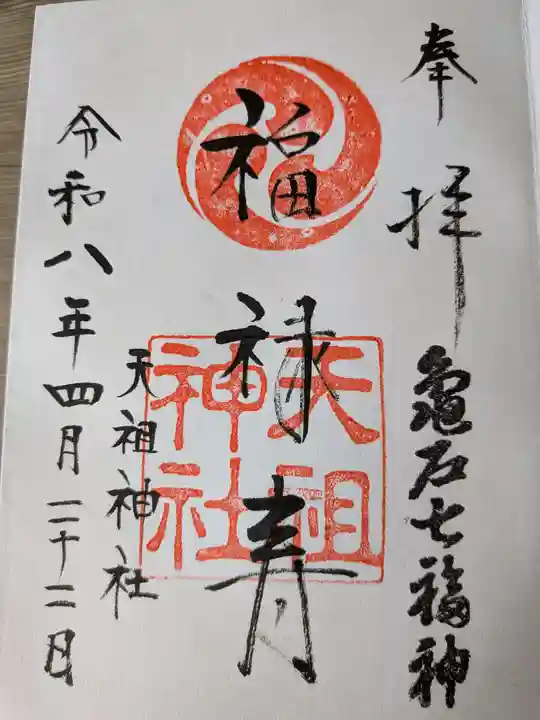 奉拝
亀石七福神
福禄寿
天祖神社
天祖神社
令和八年四月二十二日